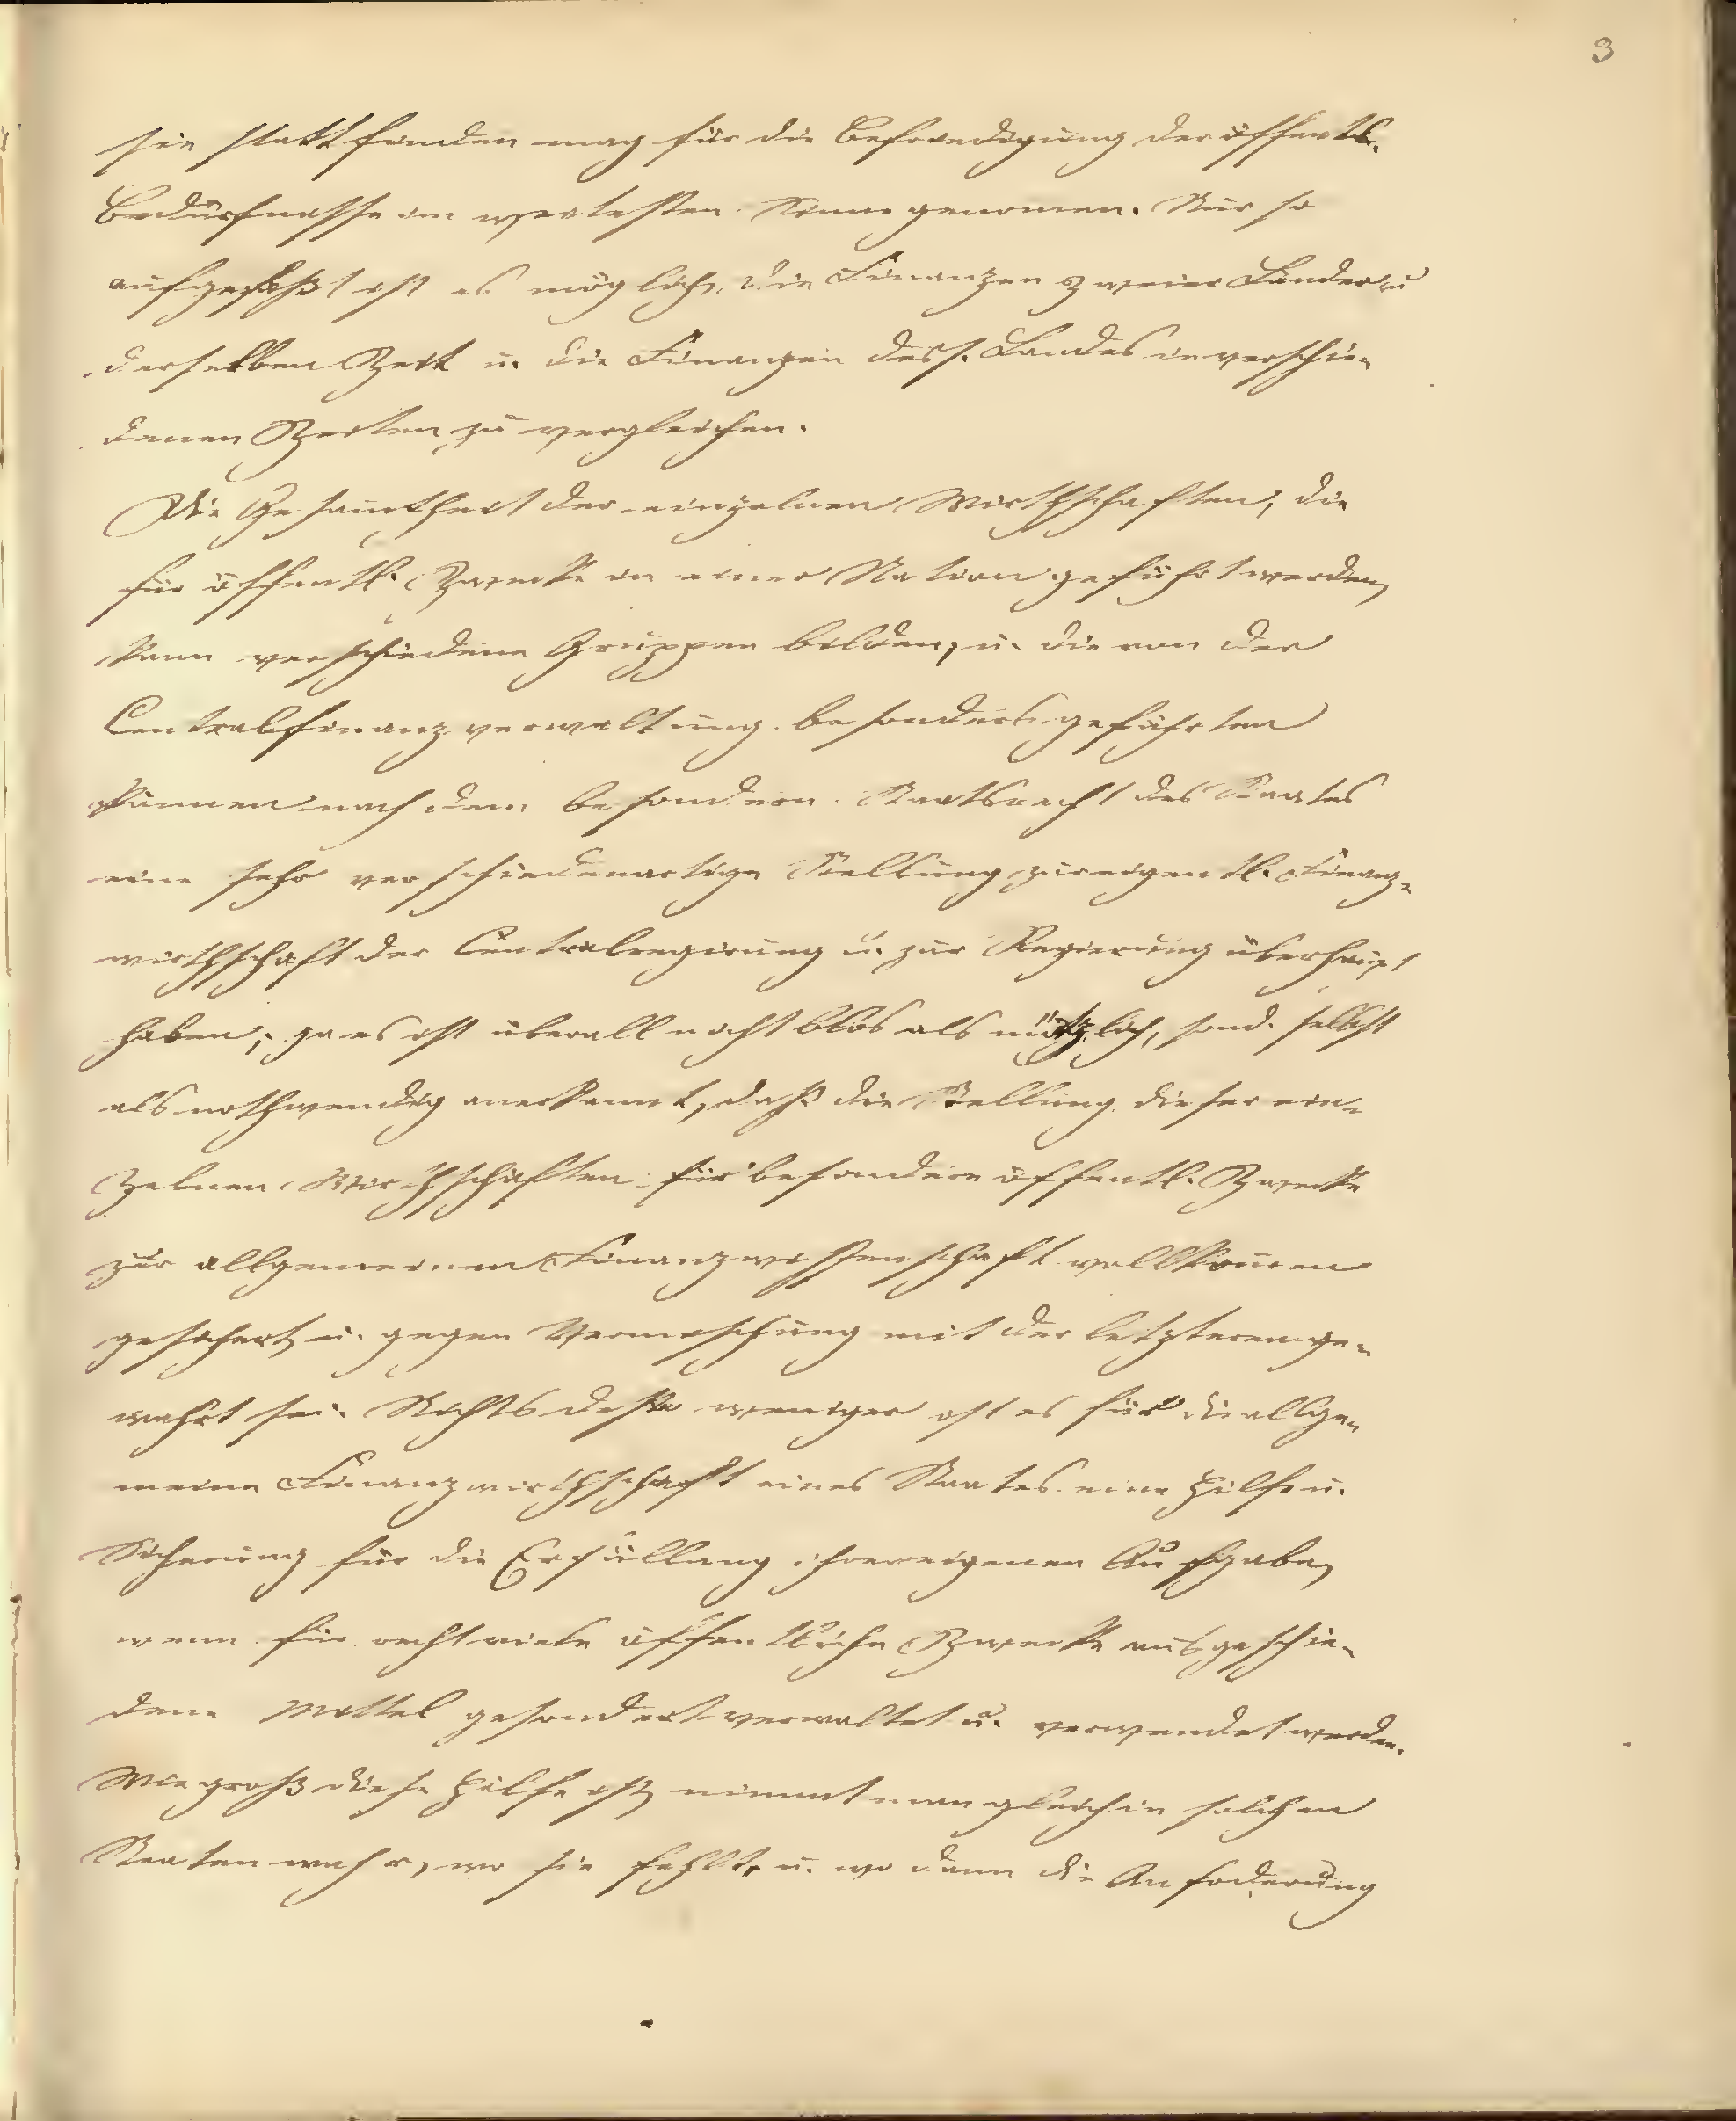 3
sie stattfinden mag für die Befriedigung der öffentl.
Bedürfnisse im weitesten Sinne genomen. Nur so
aufgefaßt ist es möglich, die Finanzen zweier Länder zu
derselben Zeit u. die Finanzen dess. Landes in verschie-
denen Zeiten zu vergleichen.
Die Gesamtheit der einzelnen Wirthschaften, die
für öffentl. Zwecke in einer Nation geführt werden,
kann verschiedene Gruppen bilden, u. die von der
Centralfinanzverwaltung besonders geführten
können nach dem besondern Staatsrecht des Staates
eine sehr verschiedenartige Stellung zur eigentl. Finanz-
wirthschaft der Centralregirung u. zur Regierung überhaupt
haben; ja es ist überall nicht blos als nützlich, sond. selbst
als nothwendig anerkannt, daß die Stellung dieser ein-
zelnen Wirthschaften für besondere öffentl. Zwecke
zur allgemeinen Finanzwissenschaft vollkomen
gesichert u. gegen Vermischung mit der letzteren ge-
wahrt sei. Nichts desto weniger ist es für die allge-
meine Finanzwirthschaft eines Staates eine Hilfe u.
Sicherung für die Erfüllung ihrer eigenen Aufgabe,
wenn für recht viele öffentliche Zwecke ausgeschie-
dene Mittel gesondert verwaltet u. verwendet werden.
Wie groß diese Hilfe ist, nimmt man gleich in solchen
Staaten wahr, wo sie fehlt, u. wo dann die Anfoderung